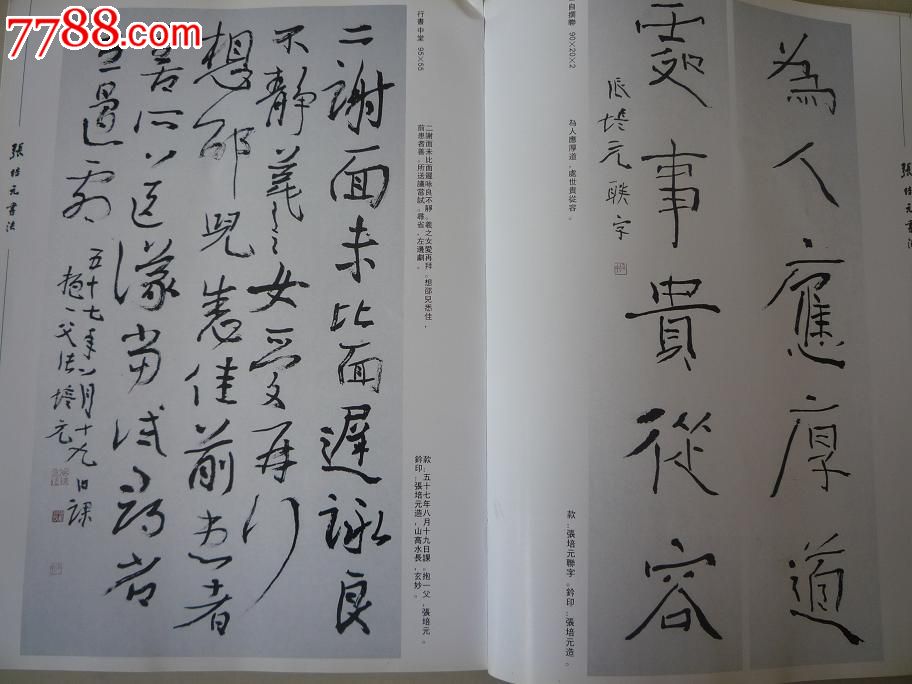 7788.com
為人應厚道
處事貴從容
張培元聯字
自撰聯 90×20×2
為人應厚道，處世貴從容。
款：張培元聯字。鈐印：張培元造。
張培元書法
二謝面未比面遲詠良
不靜羲之女愛再拜
想邵兒悉佳前患者
善所送議當試尋省
左邊劇
五十七年八月十九日課
抱一父張培元
行書中堂 95×55
二謝面未比面遲咏良不靜。羲之女愛再拜。想邵兒悉佳，
前患者善，所送議當試。尋省，左邊劇。
款：五十七年八月十九日課。抱一父，張培元。
鈐印：張培元造，山高水長，玄妙。
張培元書法